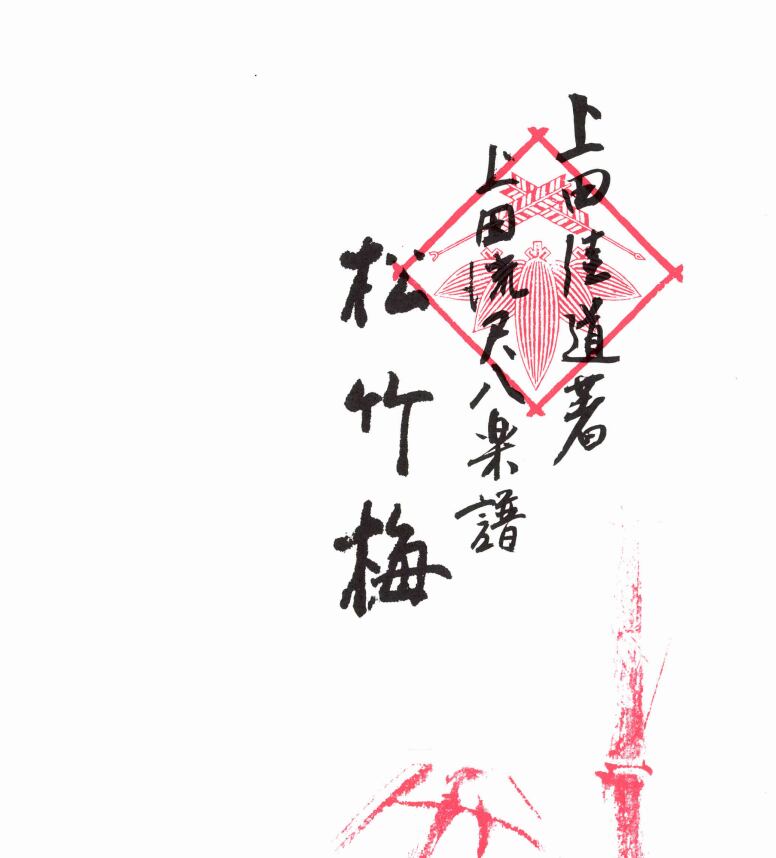 上田佳道著
上田流尺八楽譜
松竹梅